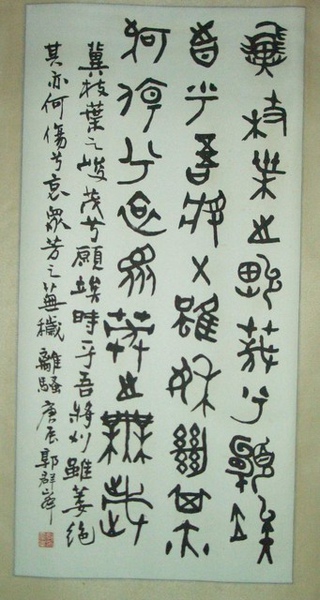 冀枝葉之峻茂兮願竢
時乎吾將乂雖萎絕其亦
何傷兮哀眾芳之蕪穢
冀枝葉之峻茂兮願竢時乎吾將刈雖萎絕
其亦何傷兮哀眾芳之蕪穢 離騷 庚辰 郭群峰